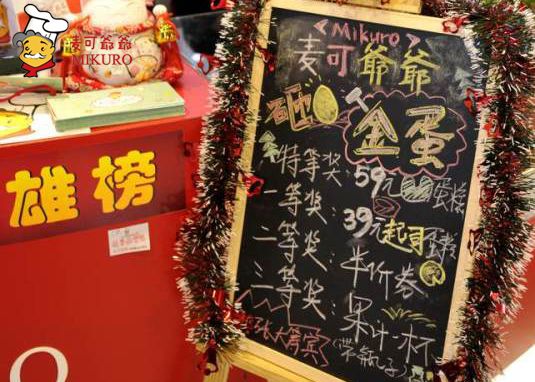 麦可爷爷
MIKURO
雄榜
<Mikuro>
麦可爷爷
砸
金蛋
特等奖:59元 蛋糕
一等奖:39元起司蛋糕
二等奖:半价卷
三等奖:果汁一杯
大胃宾